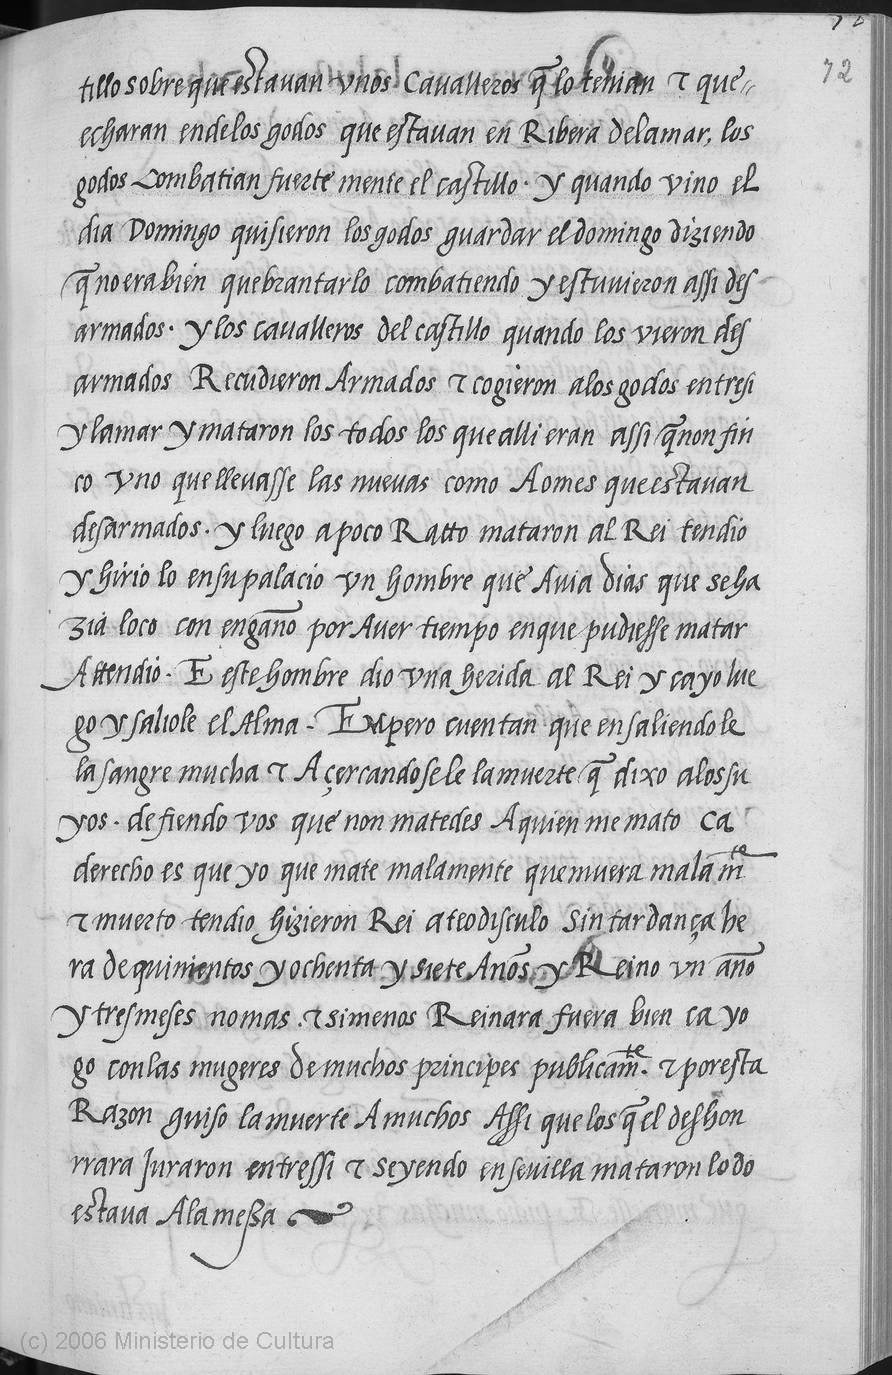 72
tillo sobre que estavan vnos Cavalleros q̃ lo tenian τ que
echaran ende los godos que estauan en Ribera de la mar, los
godos Combatian fuerte mente el castillo. y quando vino el
dia Domingo quisieron los godos guardar el domingo diziendo
q̃ no era bien quebrantarlo combatiendo y estuuieron assi des
armados. y los caualleros del castillo quando los vieron des
armados Recudieron Armados τ cogieron a los godos entre si
y la mar y mataron los todos los que alli eran assi q̃ non fin
co vno que lleuasse las nueuas como Aomes que estauan
desarmados. y luego a poco Ratto mataron al Rei tendio
y hirio lo en su palacio vn hombre que Auia dias que se ha
zia loco con engaño por Auer tiempo en que pudiesse matar
Attendio. E este hombre dio vna herida al Rei y cayo lue
go y saliole el Alma - Empero cuentan que en saliendole
la sangre mucha τ Açercandosele la muerte q̃ dixo a los su
yos. defiendo vos que non matedes A quien me mato ca
derecho es que yo que mate malamente que muera malam̃te
τ muerto tendio hizieron Rei a teodisculo Sin tardança he
ra de quinientos y ochenta y siete Años y Reino vn año
y tres meses no mas. τ si menos Reinara fuera bien ca yo
go con las mugeres de muchos principes publicam̃te. τ por esta
Razon guiso la muerte A muchos Assi que los q̃ el deshon
rrara Juraron entre ssi τ seyendo en sevilla mataron lo do
estaua A la meßa
(c) 2006 Ministerio de Cultura